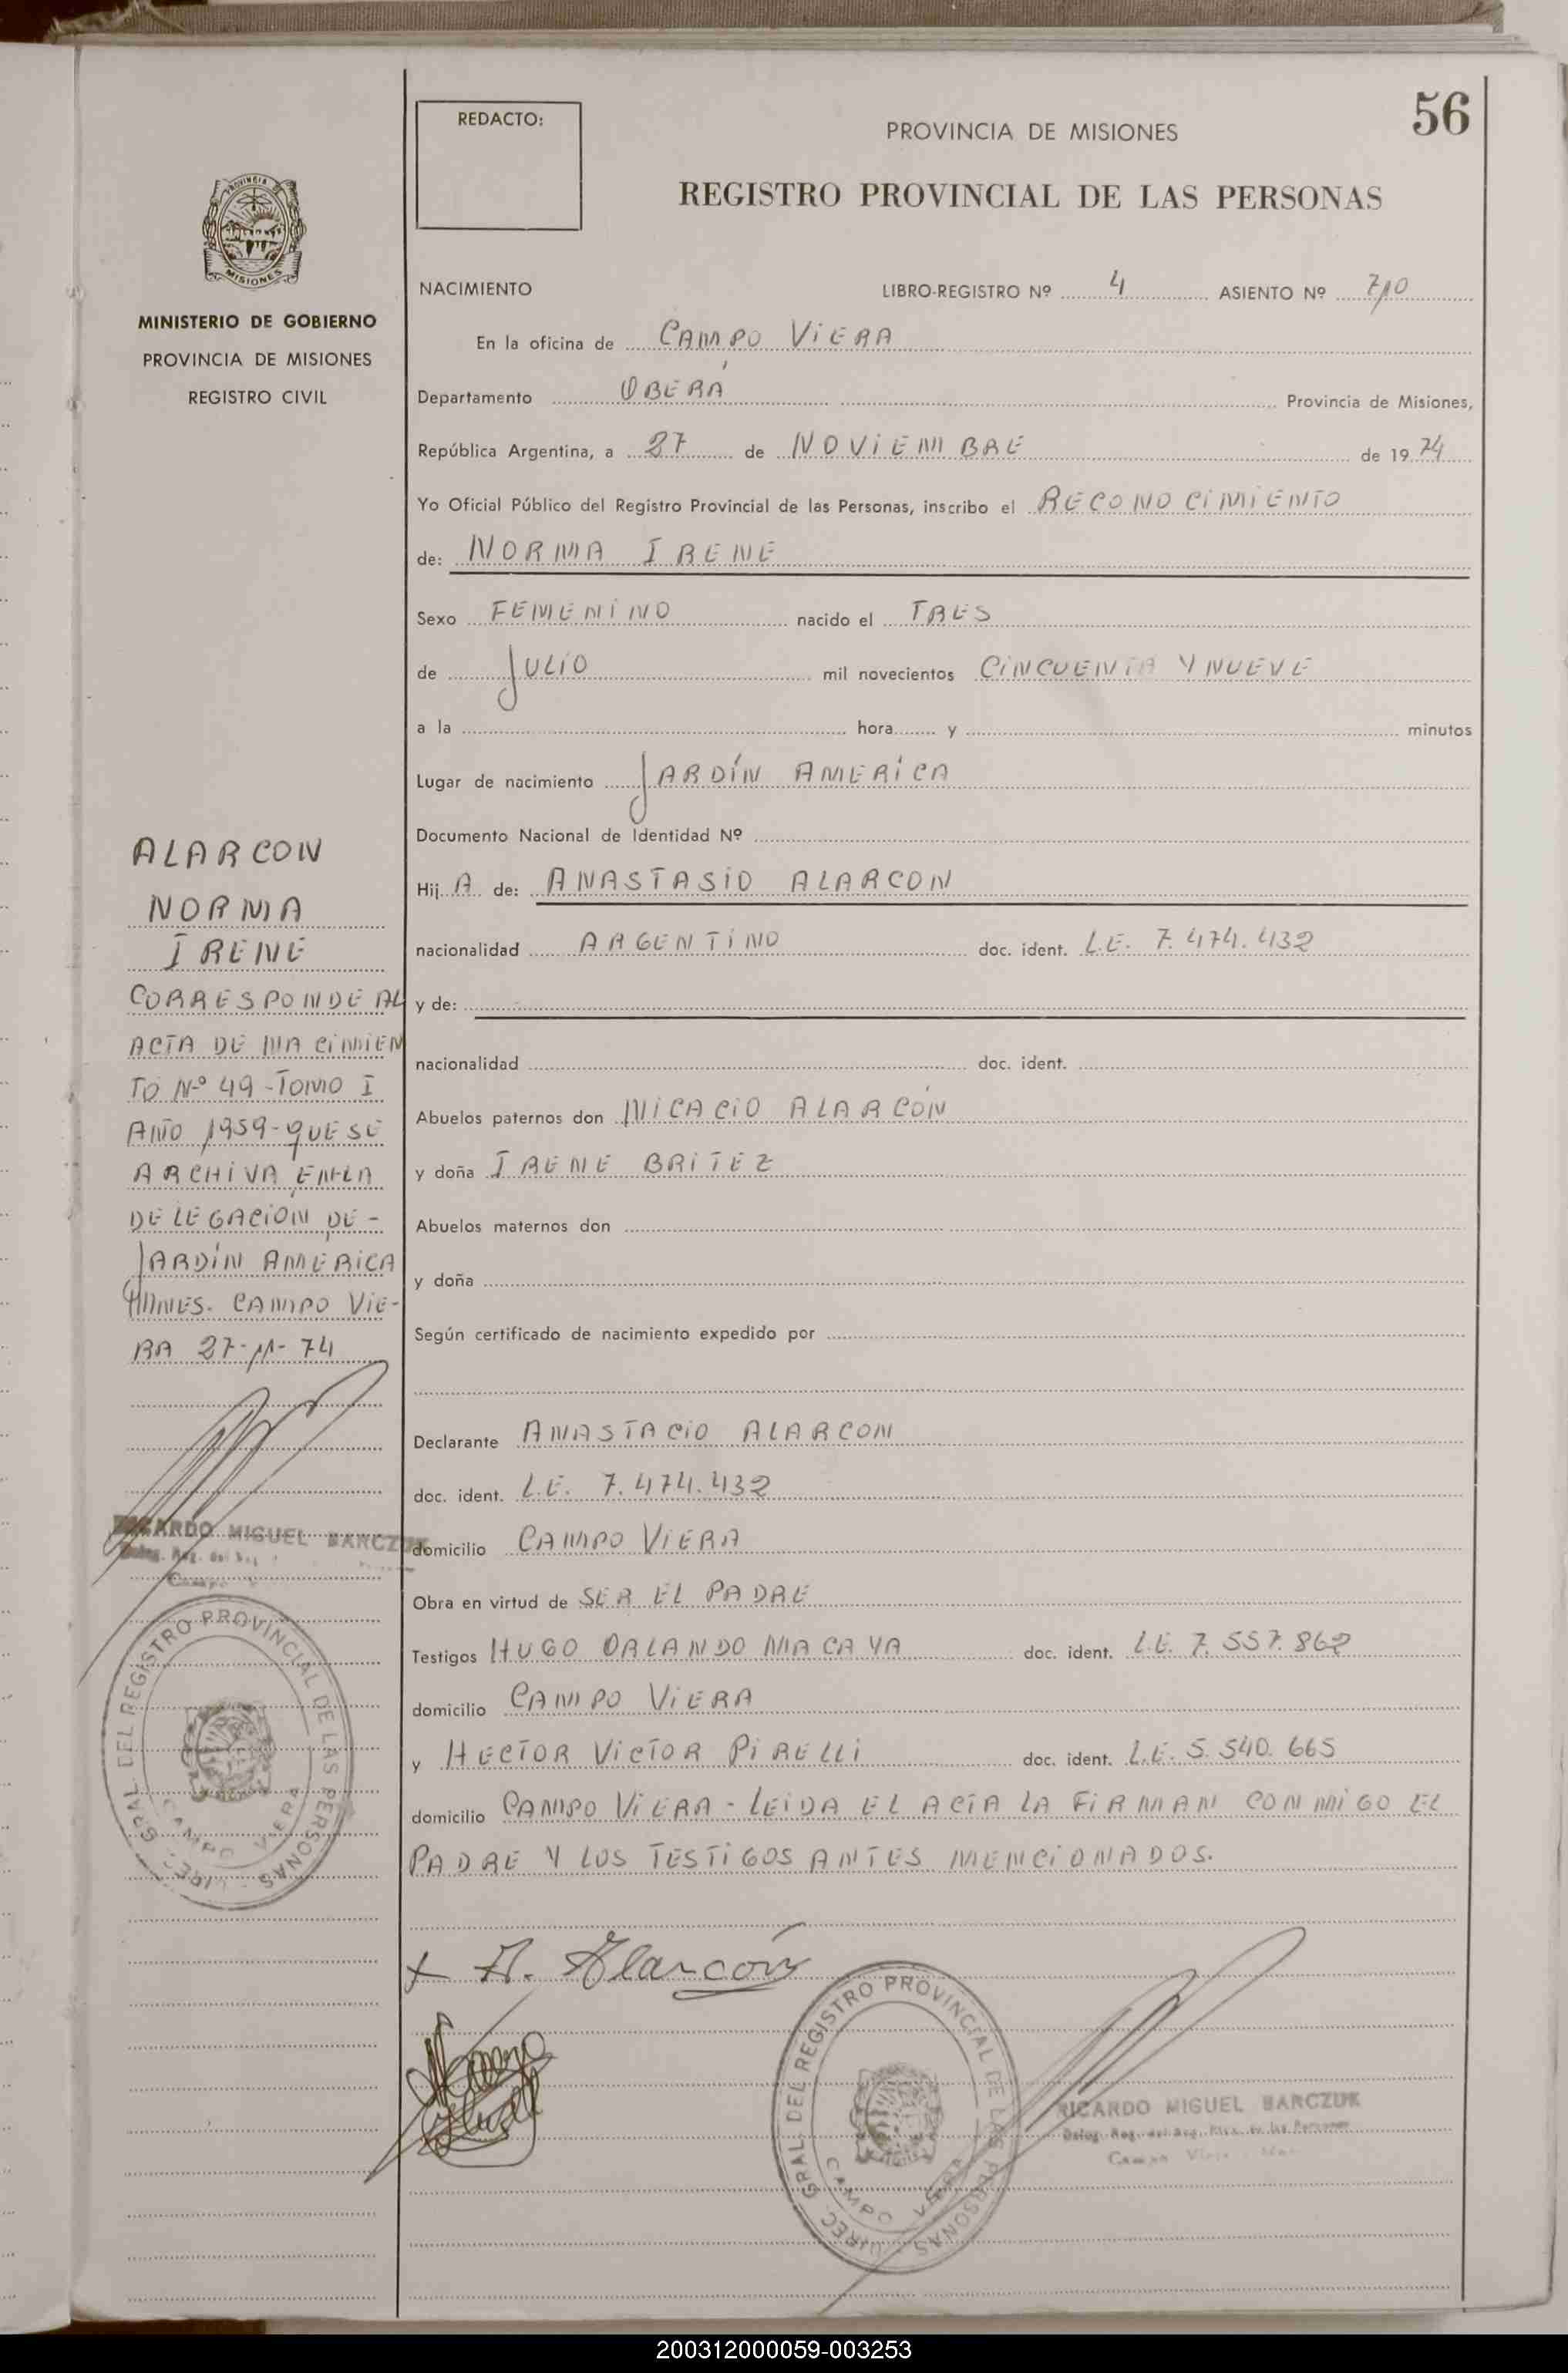 56
REDACTO:
PROVINCIA DE MISIONES
REGISTRO PROVINCIAL DE LAS PERSONAS
PROVINCIA DE
MISIONES
MINISTERIO DE GOBIERNO
PROVINCIA DE MISIONES
REGISTRO CIVIL
NACIMIENTO LIBRO-REGISTRO Nº 4 ASIENTO Nº 710
En la oficina de CAMPO VIERA
Departamento OBERÁ Provincia de Misiones,
República Argentina, a 27 de NOVIEMBRE de 19 74
Yo Oficial Público del Registro Provincial de las Personas, inscribo el RECONOCIMIENTO
de: NORMA IRENE
Sexo FEMENINO nacido el TRES
de JULIO mil novecientos CINCUENTA Y NUEVE
a la hora y minutos
Lugar de nacimiento JARDÍN AMERICA
Documento Nacional de Identidad Nº
Hij A de: ANASTASIO ALARCON
nacionalidad ARGENTINO doc. ident. L.E. 7.474.432
y de:
nacionalidad doc. ident.
Abuelos paternos don NICACIO ALARCÓN
y doña IRENE BRITEZ
Abuelos maternos don
y doña
Según certificado de nacimiento expedido por
Declarante ANASTACIO ALARCON
doc. ident. L.E. 7.474.432
domicilio CAMPO VIERA
Obra en virtud de SER EL PADRE
Testigos HUGO ORLANDO MACAYA doc. ident. L.E. 7.557.862
domicilio CAMPO VIERA
y HECTOR VICTOR PIRELLI doc. ident. L.E. 5.540.665
domicilio CAMPO VIERA - LEIDA EL ACTA LA FIRMAN CONMIGO EL
PADRE Y LOS TESTIGOS ANTES MENCIONADOS.
ALARCON
NORMA
IRENE
CORRESPONDE AL
ACTA DE NACIMIEN
TO Nº 49 - TOMO I
AÑO 1959 - QUE SE
ARCHIVA EN LA
DELEGACIÓN DE -
JARDÍN AMERICA
MNES. CAMPO VIE-
RA 27-11-74
RICARDO MIGUEL BARCZUK
Campo
DIREC. GRAL. DEL REGISTRO PROVINCIAL DE LAS PERSONAS
CAMPO VIERA
x A. Alarcón
DIREC. GRAL. DEL REGISTRO PROVINCIAL DE LAS PERSONAS
CAMPO VIERA
RICARDO MIGUEL BARCZUK
Campo Viera
200312000059-003253